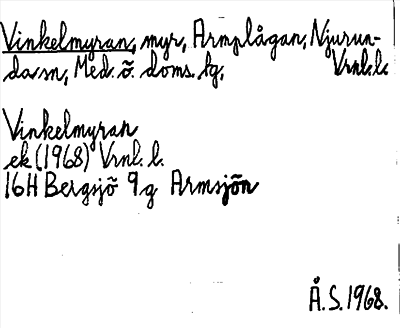 Vinkelmyran, myr, Armplågan, Njurun-
da sn, Med. ö. doms. lg, Vrnl. l.
Vinkelmyran
ek (1968) Vrnl. l.
16H Bergsjö 9g Armsjön
Å.S. 1968.